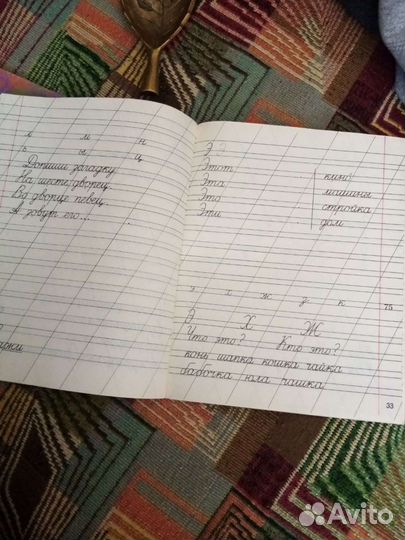 л м н
ь ы ц
Допиши загадку.
На шесте дворец.
Во дворце певец.
А зовут его...
Э
Этот
Эта
Это
Эти
кино
машины
стройка
дом
э х ж д к
75
Э Х Ж
Что это? Кто это?
конь шапка кошка чайка
бабочка юла чашка
33
Avito